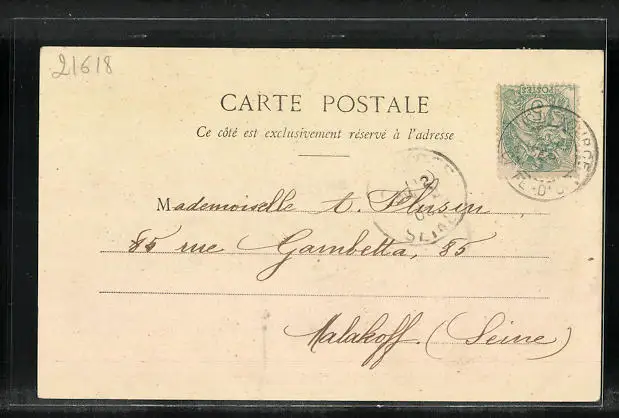 21618
CARTE POSTALE
Ce côté est exclusivement réservé à l'adresse
Mademoiselle A. Plusin
85 rue Gambetta, 85
Malakoff. (Seine)
POSTES
SEINE